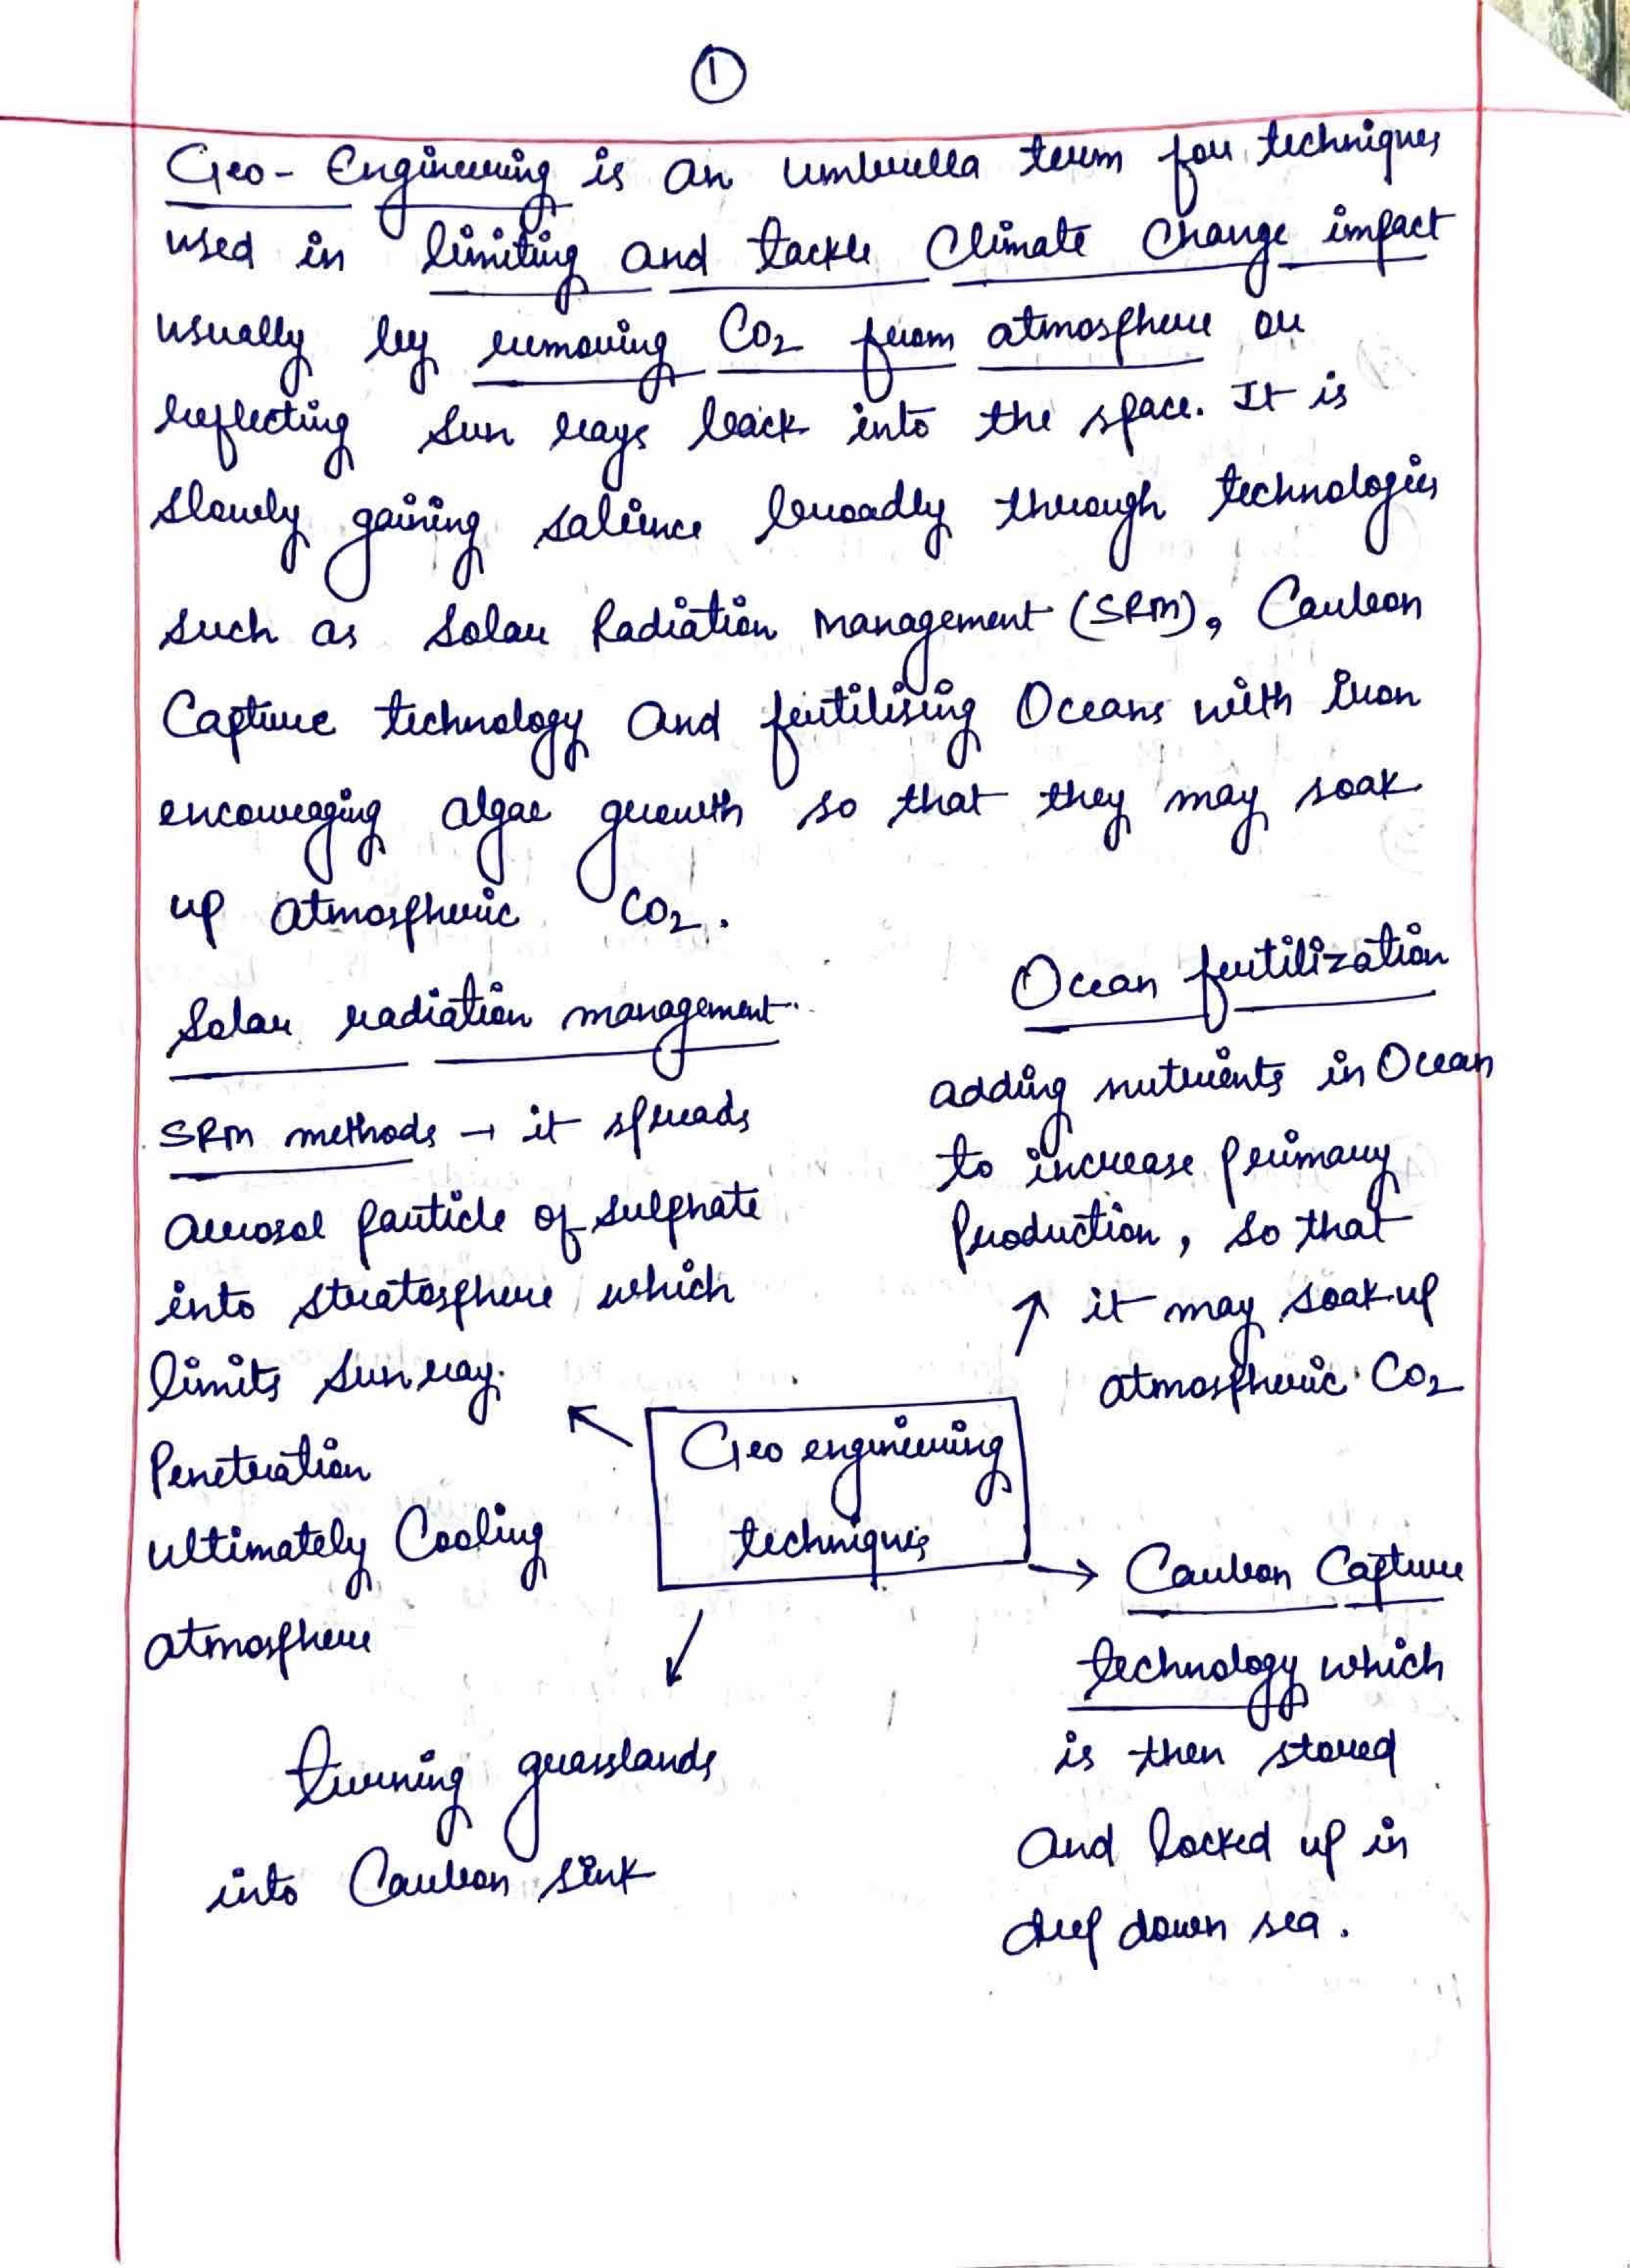 1
Geo- Engineering is an umbrella term for techniques
used in limiting and tackle Climate Change impact
usually by removing CO2 from atmosphere or
reflecting Sun rays back into the space. It is
slowly gaining salience broadly through technologies
such as Solar Radiation Management (SRM), Carbon
Capture technology and fertilising Oceans with Iron
encouraging algae growth so that they may soak
up atmospheric CO2.
Solar radiation management.
SRM methods → it spreads
aerosol particle of sulphate
into stratosphere which
limits Sun ray.
Penetration
ultimately Cooling
atmosphere
Ocean fertilization
adding nutrients in Ocean
to increase primary
Production, so that
↑ it may soak up
atmospheric CO2
Geo engineering
techniques
→ Carbon Capture
technology which
is then stored
and locked up in
deep down sea.
turning grasslands
into Carbon sink